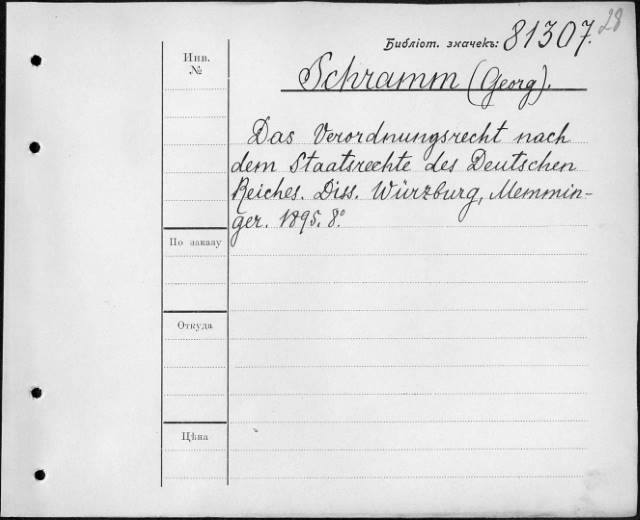 28
Библіот. значекъ: 81307.
Инв.
№
Schramm (Georg).
Das Verordnungsrecht nach
dem Staatsrechte des Deutschen
Reiches. Diss. Würzburg, Memmin-
ger. 1895. 8°
По заказу
Откуда
Цѣна